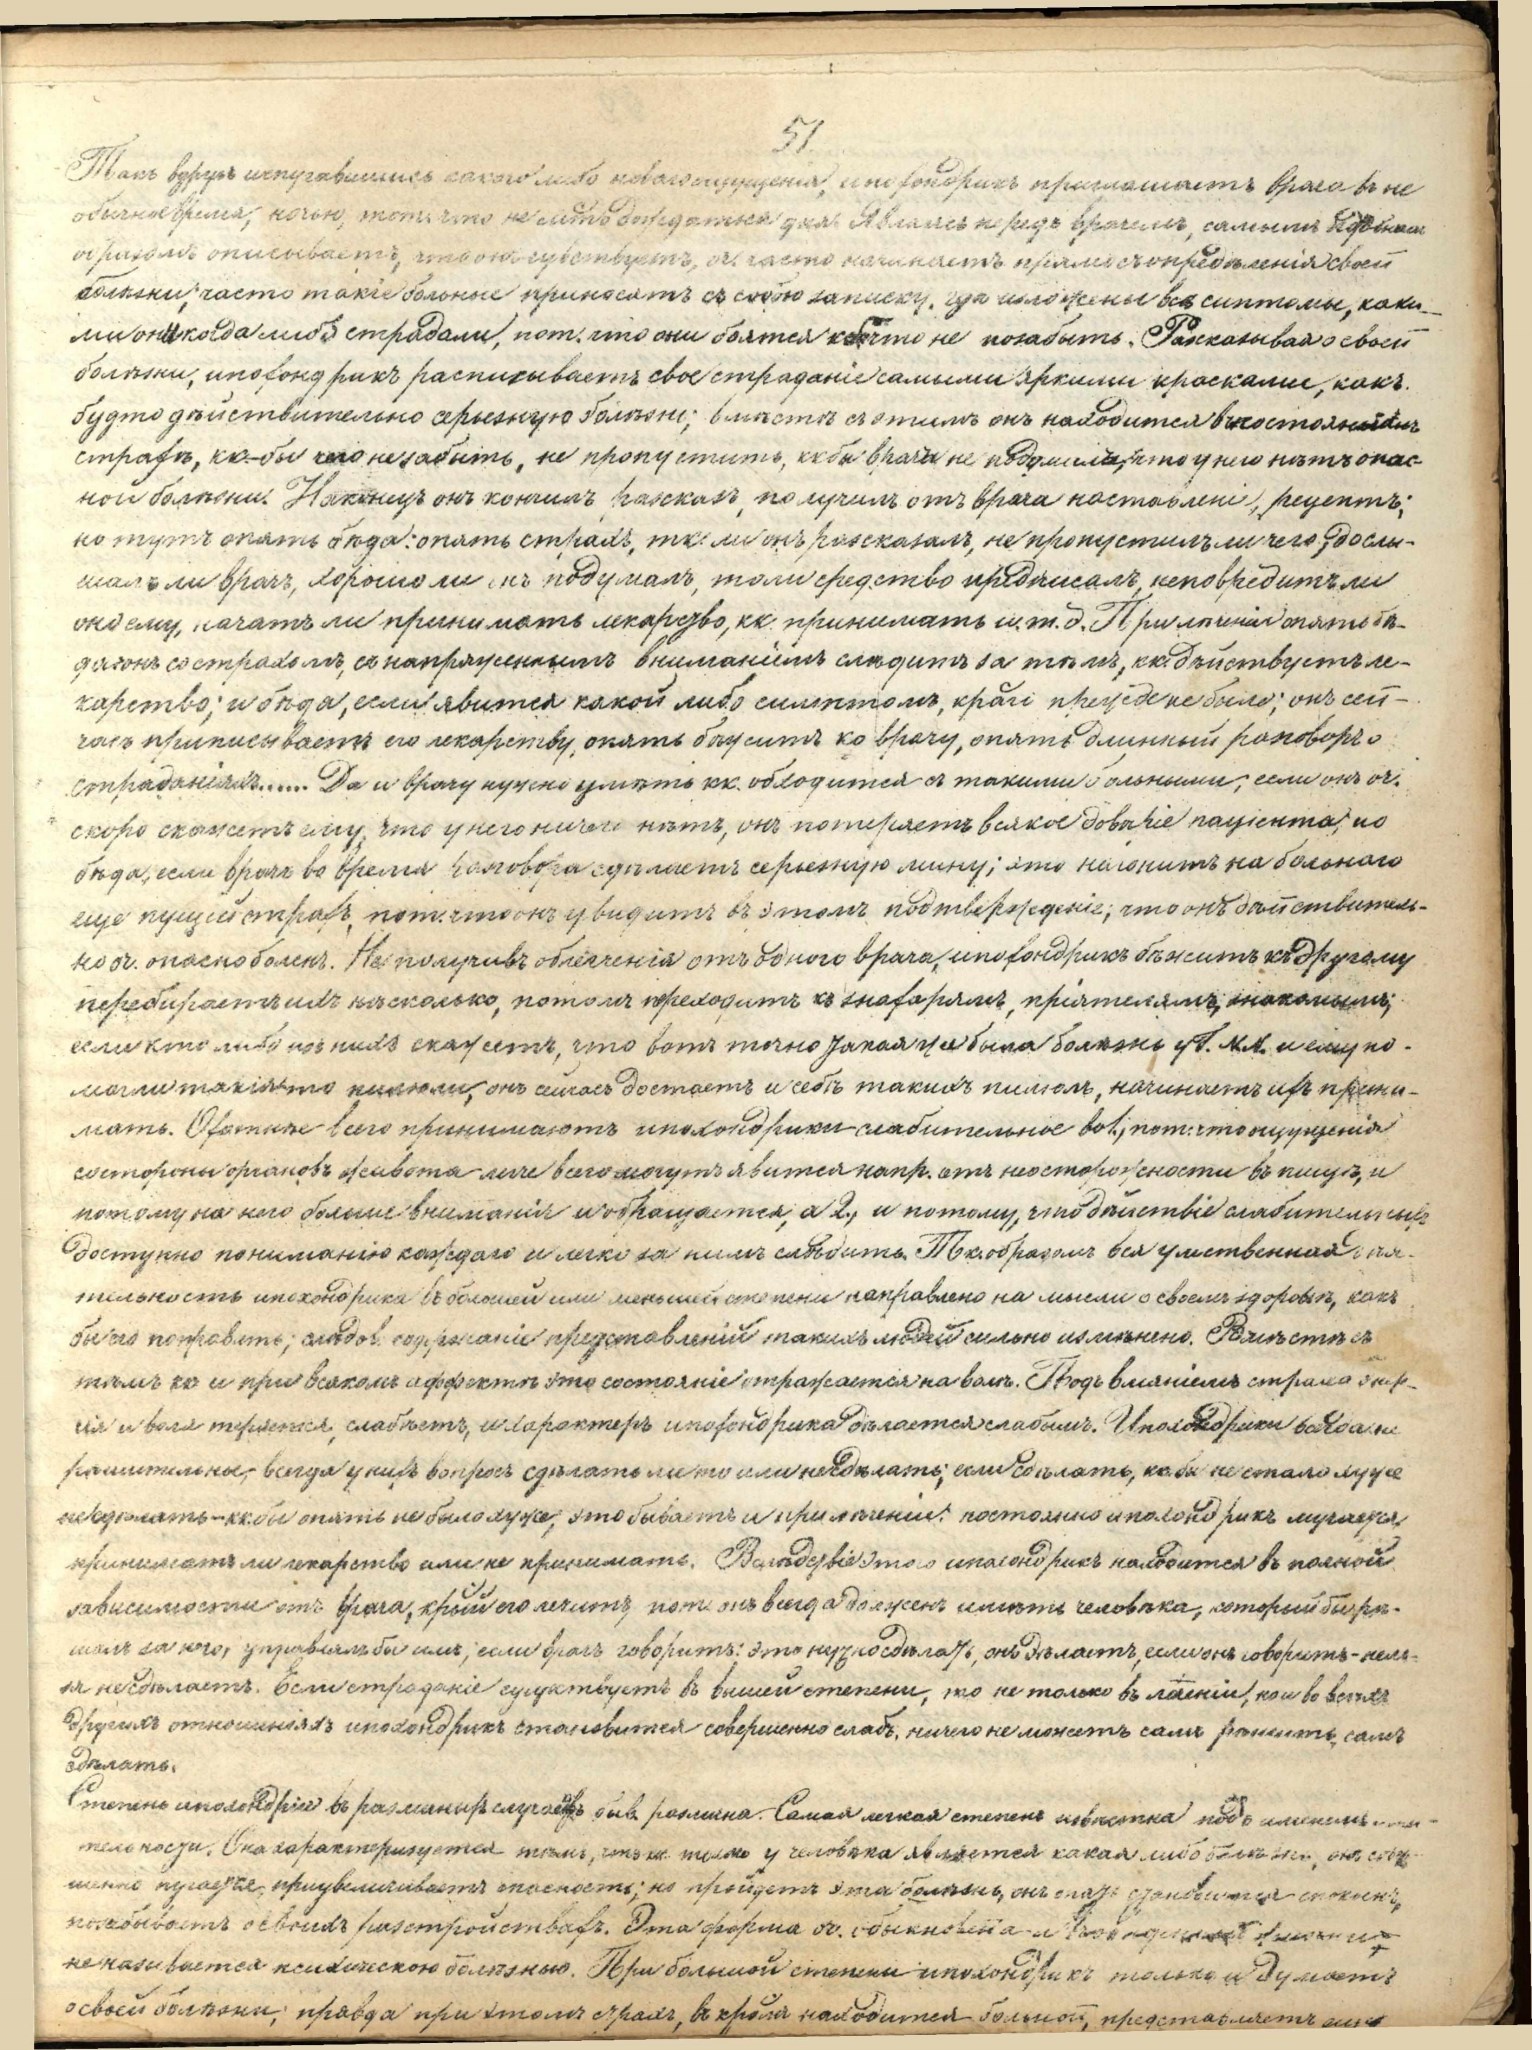 51.
Такъ вдругъ испугавшись какого либо новаго ощущенія, ипохондрикъ приглашаетъ врача въ не
обычное время, ночью, потому что не дождаться дня. Являясь передъ врачемъ, самымъ
образомъ описываетъ, что онъ чувствуетъ, оч. часто начинаетъ прямо съ опредѣленія своей
болѣзни; часто такіе больные приносятъ съ собою записку, гдѣ изложены всѣ симптомы, каки-
ми они когда либо страдали, пот. что они боятся что не позабыть. Разсказывая о своей
болѣзни, ипохондрикъ расписываетъ свое страданіе самыми яркими красками, какъ
будто дѣйствительно серьезную болѣзнь; вмѣстѣ съ этимъ онъ находится въ постоянномъ
страхѣ, кк-бы чего не забыть, не пропустить, кк бы врачъ не подумалъ, что у него нѣтъ опас-
ной болѣзни. Наконецъ онъ кончилъ разсказъ, получилъ отъ врача наставленіе, рецептъ;
но тутъ опять бѣда: опять страхъ, тк. ли онъ разсказалъ, не пропустилъ ли чего, дослы-
шалъ ли врачъ, хорошо ли онъ подумалъ, то ли средство предписалъ, не повредитъ ли
оно ему, начать ли принимать лекарство, кк. принимать и.т.д. При леченіи опять бѣ-
да: онъ со страхомъ, съ напряженнымъ вниманіемъ слѣдитъ за тѣмъ, кк. дѣйствуетъ ле-
карство; и бѣда, если явится какой либо симптомъ, крагі прежде не было; онъ сей-
часъ приписываетъ его лекарству, опять бѣжитъ ко врачу, опять длинный разговоръ о
страданіяхъ...... Да и врачу нужно умѣть кк. обходится съ такими больными, если онъ оч.
скоро скажетъ ему, что у него ничего нѣтъ, онъ потеряетъ всякое довѣріе пациента, но
бѣда, если врачъ во время разговора сдѣлаетъ серьезную мину; это нагонитъ на больнаго
еще пущій страхъ, пот. что онъ увидитъ въ этомъ подтвержденіе, что онъ дѣйствитель-
но оч. опасно боленъ. Не получивъ облегченія отъ одного врача, ипохондрикъ бѣжитъ къ другому
перебираетъ ихъ нѣсколько, потомъ переходитъ къ знахарямъ, пріятелямъ, знакомымъ;
если кто либо изъ нихъ скажетъ, что вотъ точно такая же была болѣзнь у Г. N.N. и ему по-
могли такія-то пилюли, онъ сейчасъ достаетъ и себѣ такихъ пилюль, начинаетъ ихъ прини-
мать. Охотнѣе всего принимаютъ ипохондрики слабительное во 1, пот. что ощущенія
со стороны органовъ живота легче всего могутъ явится напр. отъ неосторожности въ пищѣ, и
потому на него больше вниманія и обращается, а 2, и потому, что дѣйствіе слабительныхъ
доступно пониманію каждаго и легко за нимъ слѣдить. Тк. образомъ вся умственная дѣя-
тельность ипохондрика въ большей или меньшей степени направлено на мысли о своемъ здоровьѣ, какъ
бы его поправить; слѣдов. содержаніе представленій такихъ людей сильно измѣнено. Вмѣстѣ съ
тѣмъ кк и при всякомъ аффектѣ это состояніе отражается на волѣ. Подъ вліяніемъ страха энер-
гія и воля теряется, слабѣетъ, и характеръ ипохондрика дѣлается слабымъ. Ипохондрики всегда не
рѣшительны,- всегда у нихъ вопросъ сдѣлать ли то или не сдѣлать; если сдѣлать, кк. бы не стало хуже
не сдѣлать-кк. бы опять не было хуже, это бываетъ и при леченіи: постоянно ипохондрикъ мучается,
принимать ли лекарство или не принимать. Вслѣдствіе этого ипохондрикъ находится въ полной
зависимости отъ врача, крый его лечитъ, пот. онъ всегда долженъ имѣть человѣка, который бы рѣ-
шалъ за него, управлялъ бы имъ; если врачъ говоритъ: это нужно сдѣлать, онъ дѣлаетъ, если онъ говоритъ-нель-
зя не сдѣлаетъ. Если страданіе существуетъ въ высшей степени, то не только въ леченіи, но и во всѣхъ
другихъ отношеніяхъ ипохондрикъ становится совершенно слабъ, ничего не можетъ самъ рѣшить, самъ
сдѣлать.
Степень ипохондріи въ различныхъ случаяхъ быв. различна. Самая легкая степень извѣстна подъ именемъ мни-
тельности. Она характеризуется тѣмъ, что кк. только у человѣка является какая либо болѣзнь, онъ
пугается, преувеличиваетъ опасность; но пройдетъ эта болѣзнь, онъ опять становится спокоенъ,
позабываетъ о своихъ разстройствахъ. Эта форма оч. обыкновенна и
не называется психическою болѣзнью. При большой степени ипохондрикъ только и думаетъ
о своей болѣзни; правда при этомъ страхъ, въ кромъ находится больной, представляетъ